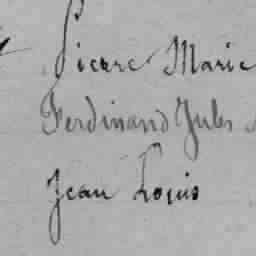 Pierre Marie
Ferdinand Jules
Jean Louis